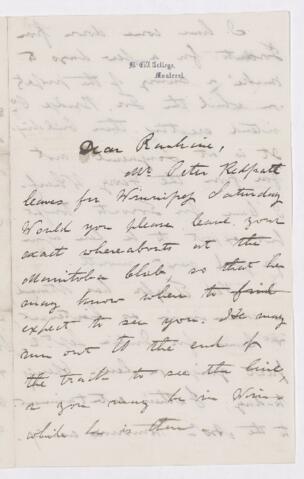 McGill College,
Montreal.
Dear Rankine,
Mr. Peter Redpath
leaves for Winnipeg Saturday
Would you please leave your
exact whereabouts at the
Manitoba Club so that he
may know where to find
expect to see you. He may
run out to the end of
the track to see the line
or you may be in Winn
while he is there